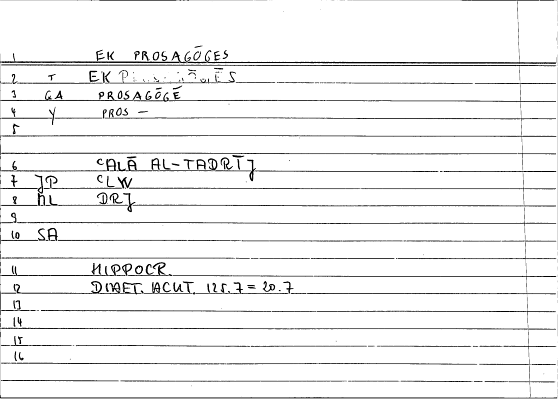 1 EK PROSAGŌGES
2 T EK
3 GA PROSAGŌGĒ
4 Y PROS –
5
6 ʿALĀ AL-TADRĪJ
7 JP ʿLW
8 NL DRJ
9
10 SA
11 HIPPOCR.
12 DIAET. ACUT. 125.7 = 20.7
13
14
15
16